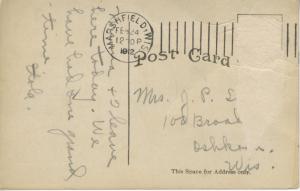 MARSHFIELD, WIS.
FEB 24
12 30 P
1912
Post Card
a & I leave
here today. We
have had one grand
time
Lola.
Mrs. J. P. L
108 Broad
Oshkosh
Wis.
This Space for Address only.